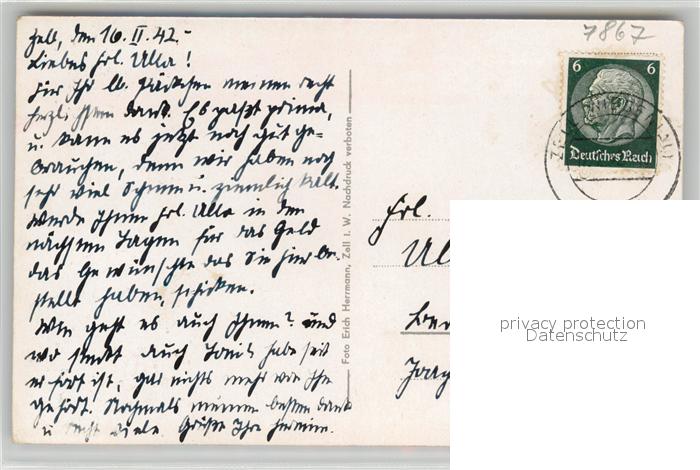 Zell, den 16.II.42.-
Liebes Frl. Ulla!
Für Ihr lb. Päckchen meinen recht
herzlichsten Dank. Es paßt prima,
u. kann es jetzt noch gut ge-
brauchen, denn wir haben noch
sehr viel Schnee u. ziemlich kalt.
Werde Ihnen Frl. Ulla in den
nächsten Tagen für das Geld
das Gewünschte das Sie hier be-
stellt haben, schicken.
Wie geht es auch Ihnen? und
wo steckt auch habe seit
er fort ist, gar nichts mehr von Ihm
gehört. Nochmals meinen besten Dank
u. recht viele Grüße Ihre
Foto Erich Herrmann, Zell i. W. Nachdruck verboten
7867
6 6
Deutsches Reich
Frl.
Ul
privacy protection
Datenschutz